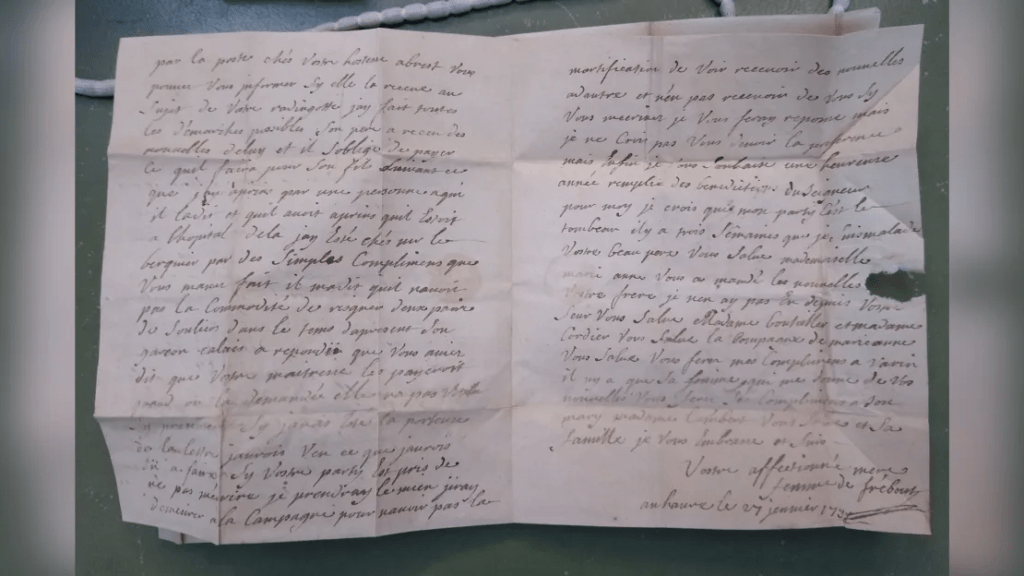 par la poste chés Votre hotesse abrest Vous
pouvez Vous informer Sy elle la receue au
Sujet de Votre radingotte jay fait toutes
les démarches posibles Son pere a receu des
nouvelles deluy et il Soblige de payer
ce quil faira pour Son fils Suivans ce
que jay apris par une personne aqui
il ladit et quil avoit apris quil Estoit
a lhopital dela jay Esté chés mr le
berquier par des Simples Complimens que
Vous mavez fait il madit quil navoit
pas la Commodité de deux paire
de Souliers dans le tems dapresent Son
garcon calais a repondu que Vous aviez
dit que Votre maitresse les payeroit
quand on la demandée elle na pas Voulu
Sy javais Esté la porteuse
de la lettre jaurois Veu ce que jaurois
dû a faire Sy Vostre party Est pris de
ne pas mecrire je prendray le mien jiray
demeurer a la Campagne pour navoir pas la
mortification de Voir recevoir des nouvelles
adautre et nen pas recevoir de Vous Sy
Vous mecrivez je Vous feray reponse mais
je ne Crois pas Vous devoir la preference
mais Enfin je Vous Souhaite une heureuse
année remplie des benedictions du Seigneur
pour moy je crois que mon party Est le
tombeau il y a trois Semaines que je suis malade
Vostre beau pere Vous Salue mademoiselle
marie anne Vous a mandé les nouvelles
Votre frere je nen ay pas Eu depuis Votre
Seur Vous Salue Madame et madame
Cordier Vous Salue la Compagne de marie anne
Vous Salue Vous ferez mes Complimens a Varin
il ny a que Sa femme que me donne de Vos
nouvelles Vous ferez Ses Complimens a Son
mary madame Vous Salue et Sa
famille je Vous Embrasse et Suis
Vostre affectionnée mere
femme de
au havre le 27 jenvier